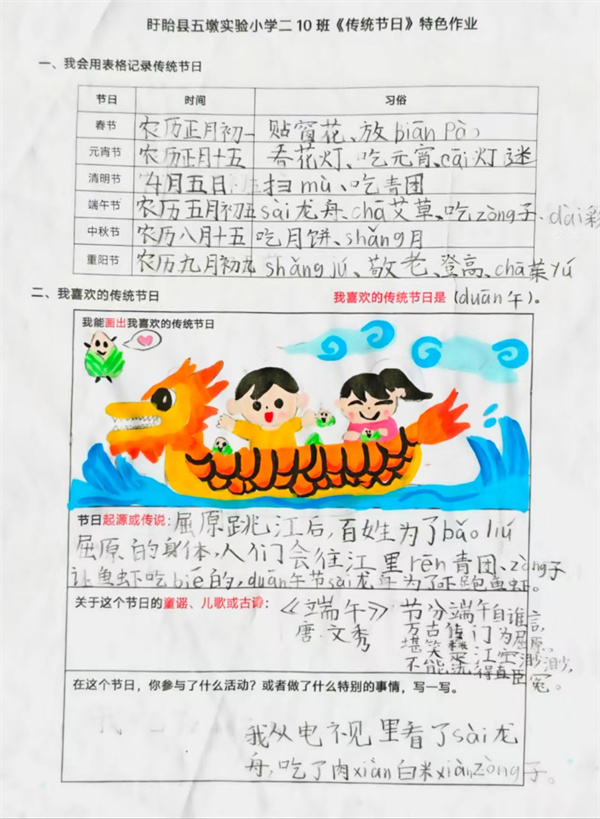 盱眙县五墩实验小学二10班《传统节日》特色作业
一、我会用表格记录传统节日
节日 时间 习俗
春节 农历正月初一 贴窗花、放biān pào
元宵节 农历正月十五 看花灯、吃元宵、cāi灯谜
清明节 4月五日 扫mù、吃青团
端午节 农历五月初五 sài龙舟、chā艾草、吃zòng子、dài彩
中秋节 农历八月十五 吃月饼、shǎng月
重阳节 农历九月初九 shǎng jú、敬老、登高、chā茱yú
二、我喜欢的传统节日 我喜欢的传统节日是(duān午)。
我能画出我喜欢的传统节日
节日起源或传说:屈原跳江后,百姓为了bǎo liú
屈原的身体,人们会往江里rēn青团、zòng子
让鱼虾吃bié的,duān午节sài龙舟为了吓跑鱼虾。
关于这个节日的童谣、儿歌或古诗:《端午》
唐·文秀
节分端午自谁言,
万古传门为屈原。
堪笑楚江空渺渺,
不能洗得直臣冤。
在这个节日,你参与了什么活动?或者做了什么特别的事情,写一写。
我从电视里看了sài龙
舟,吃了肉xiàn白米xiànzòng子。